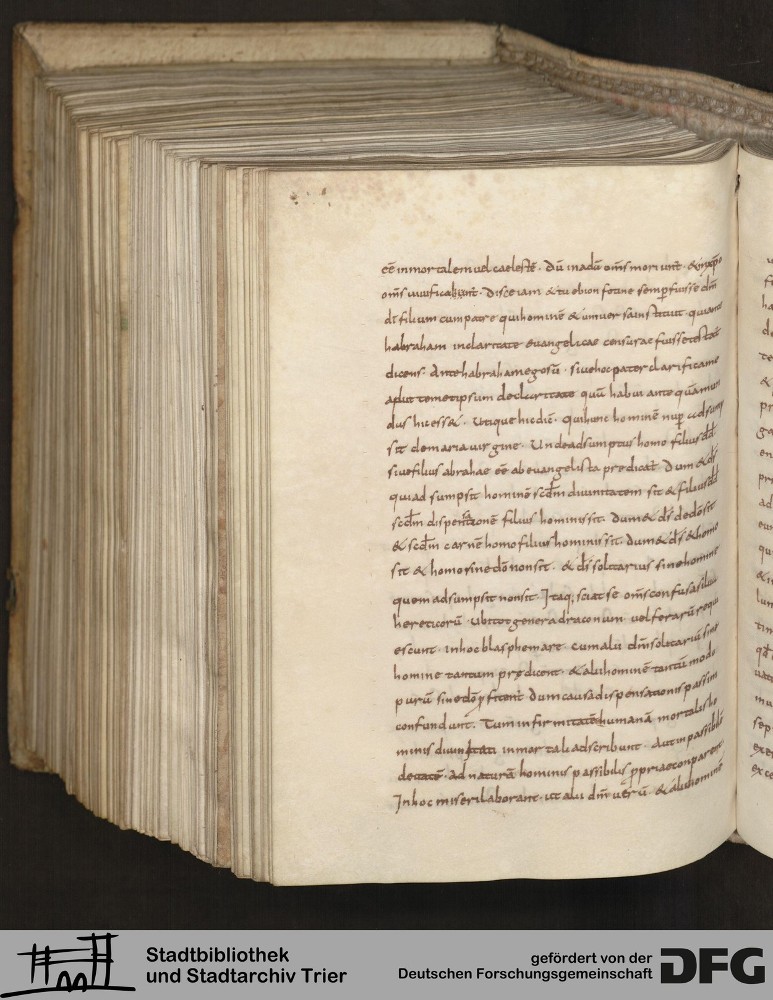 cē inmortalem uel caelestē. Dū inadā om̄s moriunt̄. & inxp̄o
om̄s uiuificabunt̄. Disce iam & tu ebion fotine semp̄ fuisse dm̄
dī filium cum patre qui hominē & uniuersa instituit. quiante
habraham inclaritate euangelicae censurae fuisse testatᷓ
dicens. Ante habraham ego sū. siue hoc pater clarifica me
aput temetipsum de claritate quā habui ante quā mun
dus hic ess&. Utique hic diē. qui hunc hominē nup̄ adsump
sit de maria uirgine. Unde adsumptus homo filius dd̄
siue filius abrahae eē ab euangelista predicatᷓ. Dum & ds̄
qui adsumpsit hominē scd̄m diuinitatem sit & filius dd̄
scd̄m dispensationē filius hominis sit. Dum & ds̄ de dō sit
& scd̄m carnē homo filius hominis sit. Dum & ds̄ & homo
sit & homo sine dō non sit. & ds̄ solitarius sine homine
quem adsumpsit non sit. Itaq; sciat se om̄s confusa silua
hereticorū. ubi tot genera draconum uel ferarū requi
escunt. in hoc blasphemare. cum alii dm̄ solitariū sine
homine tantum predicent. & alii hominē tantū modo
purū sine dō p̄fitent̄. Dum causa dispensationis passim
confundunt. Tum infirmitatē humanā mortalis ho
minis diuinitati inmortali adscribunt. Aut inpassibilē
deitatē. ad naturā hominis passibilis p̄priae conparent
In hoc miseri laborant. ut alii dm̄ uerū. & alii hominē
Stadtbibliothek
und Stadtarchiv Trier
gefördert von der
Deutschen Forschungsgemeinschaft
DFG